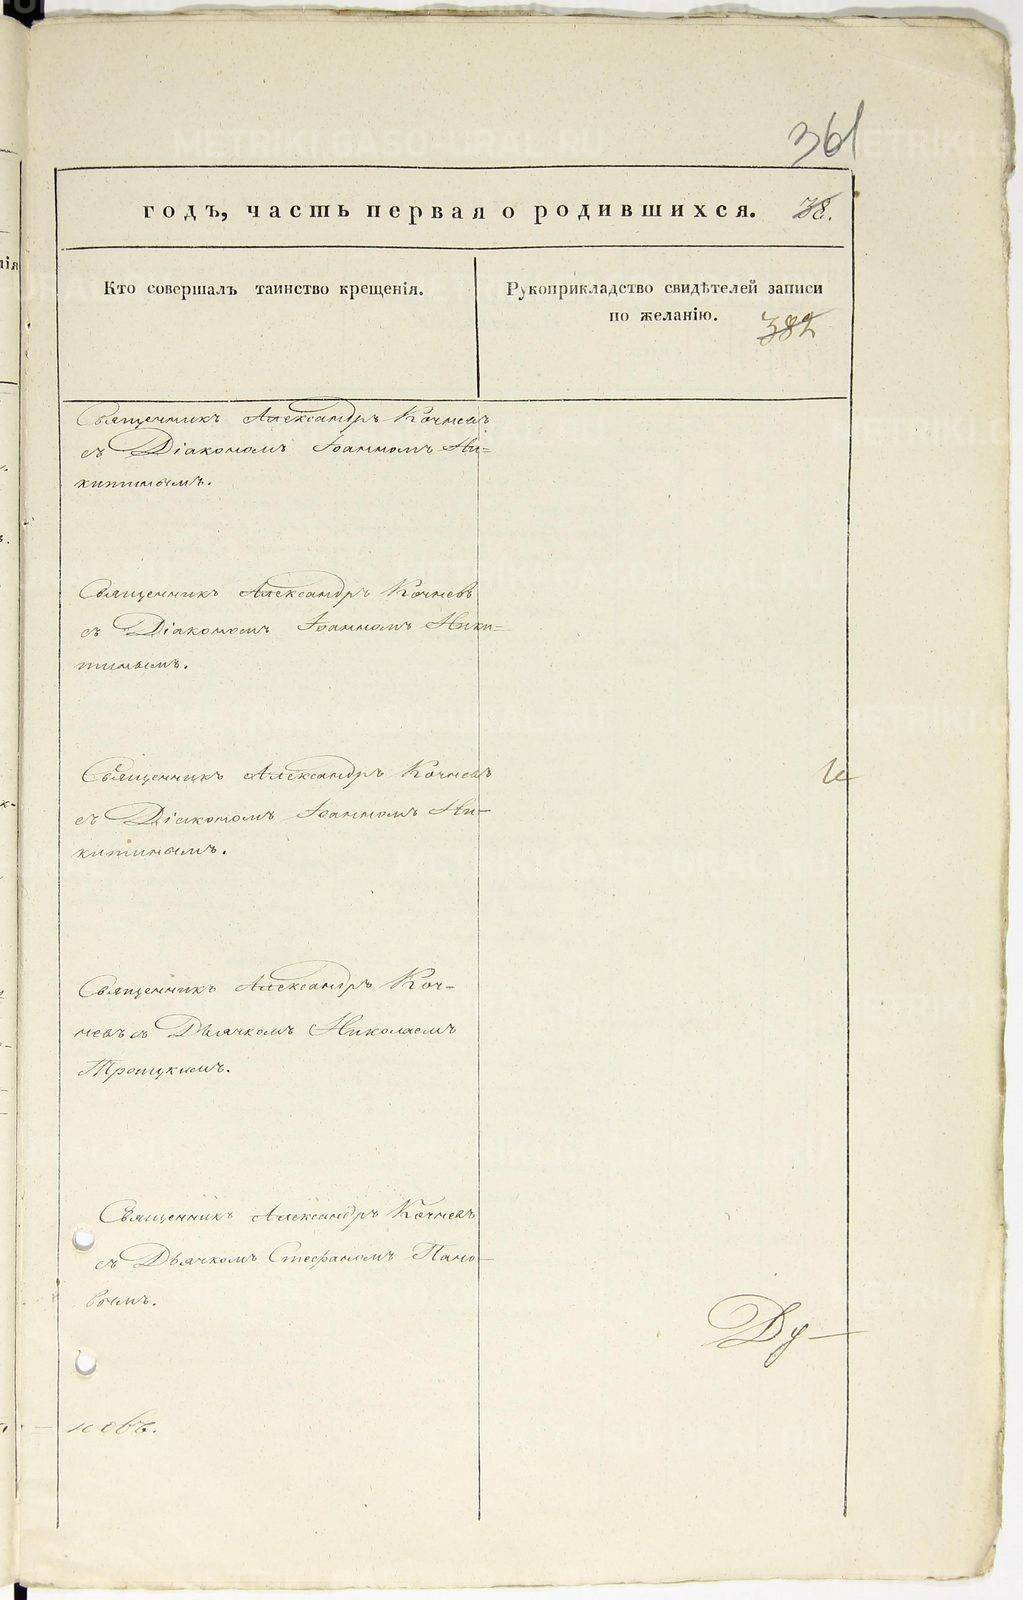 361
годъ, часть первая о родившихся. 38.
Кто совершалъ таинство крещенія.
Рукоприкладство свидѣтелей записи
по желанію. 382
Священникъ Александръ Кочневъ
съ Діакономъ Іоанномъ Ни=
китинымъ.
Священникъ Александръ Кочневъ
съ Діакономъ Іоанномъ Ники=
тинымъ.
Священникъ Александръ Кочневъ
съ Діакономъ Іоанномъ Ни-
китинымъ.
и
Священникъ Александръ Коч-
невъ съ Дьячкомъ Николаемъ
Троицкимъ.
Священникъ Александръ Кочневъ
съ Дьячкомъ Стефаномъ Пано-
вымъ.
Ду-
новъ.
METRIKI.GASO-URAL.RU